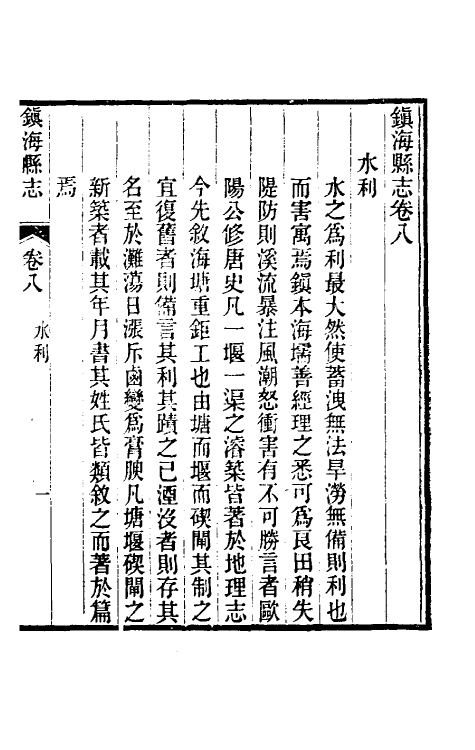 鎮海縣志卷八
水利
水之爲利最大然使蓄洩無法旱澇無備則利也
而害寓焉鎮本海壖善經理之悉可爲良田稍失
隄防則溪流暴注風潮怒衝害有不可勝言者歐
陽公修唐史凡一堰一渠之溶築皆著於地理志
今先敘海塘重鉅工也由塘而堰而碶閘其制之
宜復舊者則備言其利其蹟之已湮沒者則存其
名至於灘蕩日漲斥鹵變爲膏腴凡塘堰碶閘之
新築者載其年月書其姓氏皆類敘之而著於篇
焉
鎮海縣志
卷八
水利
一